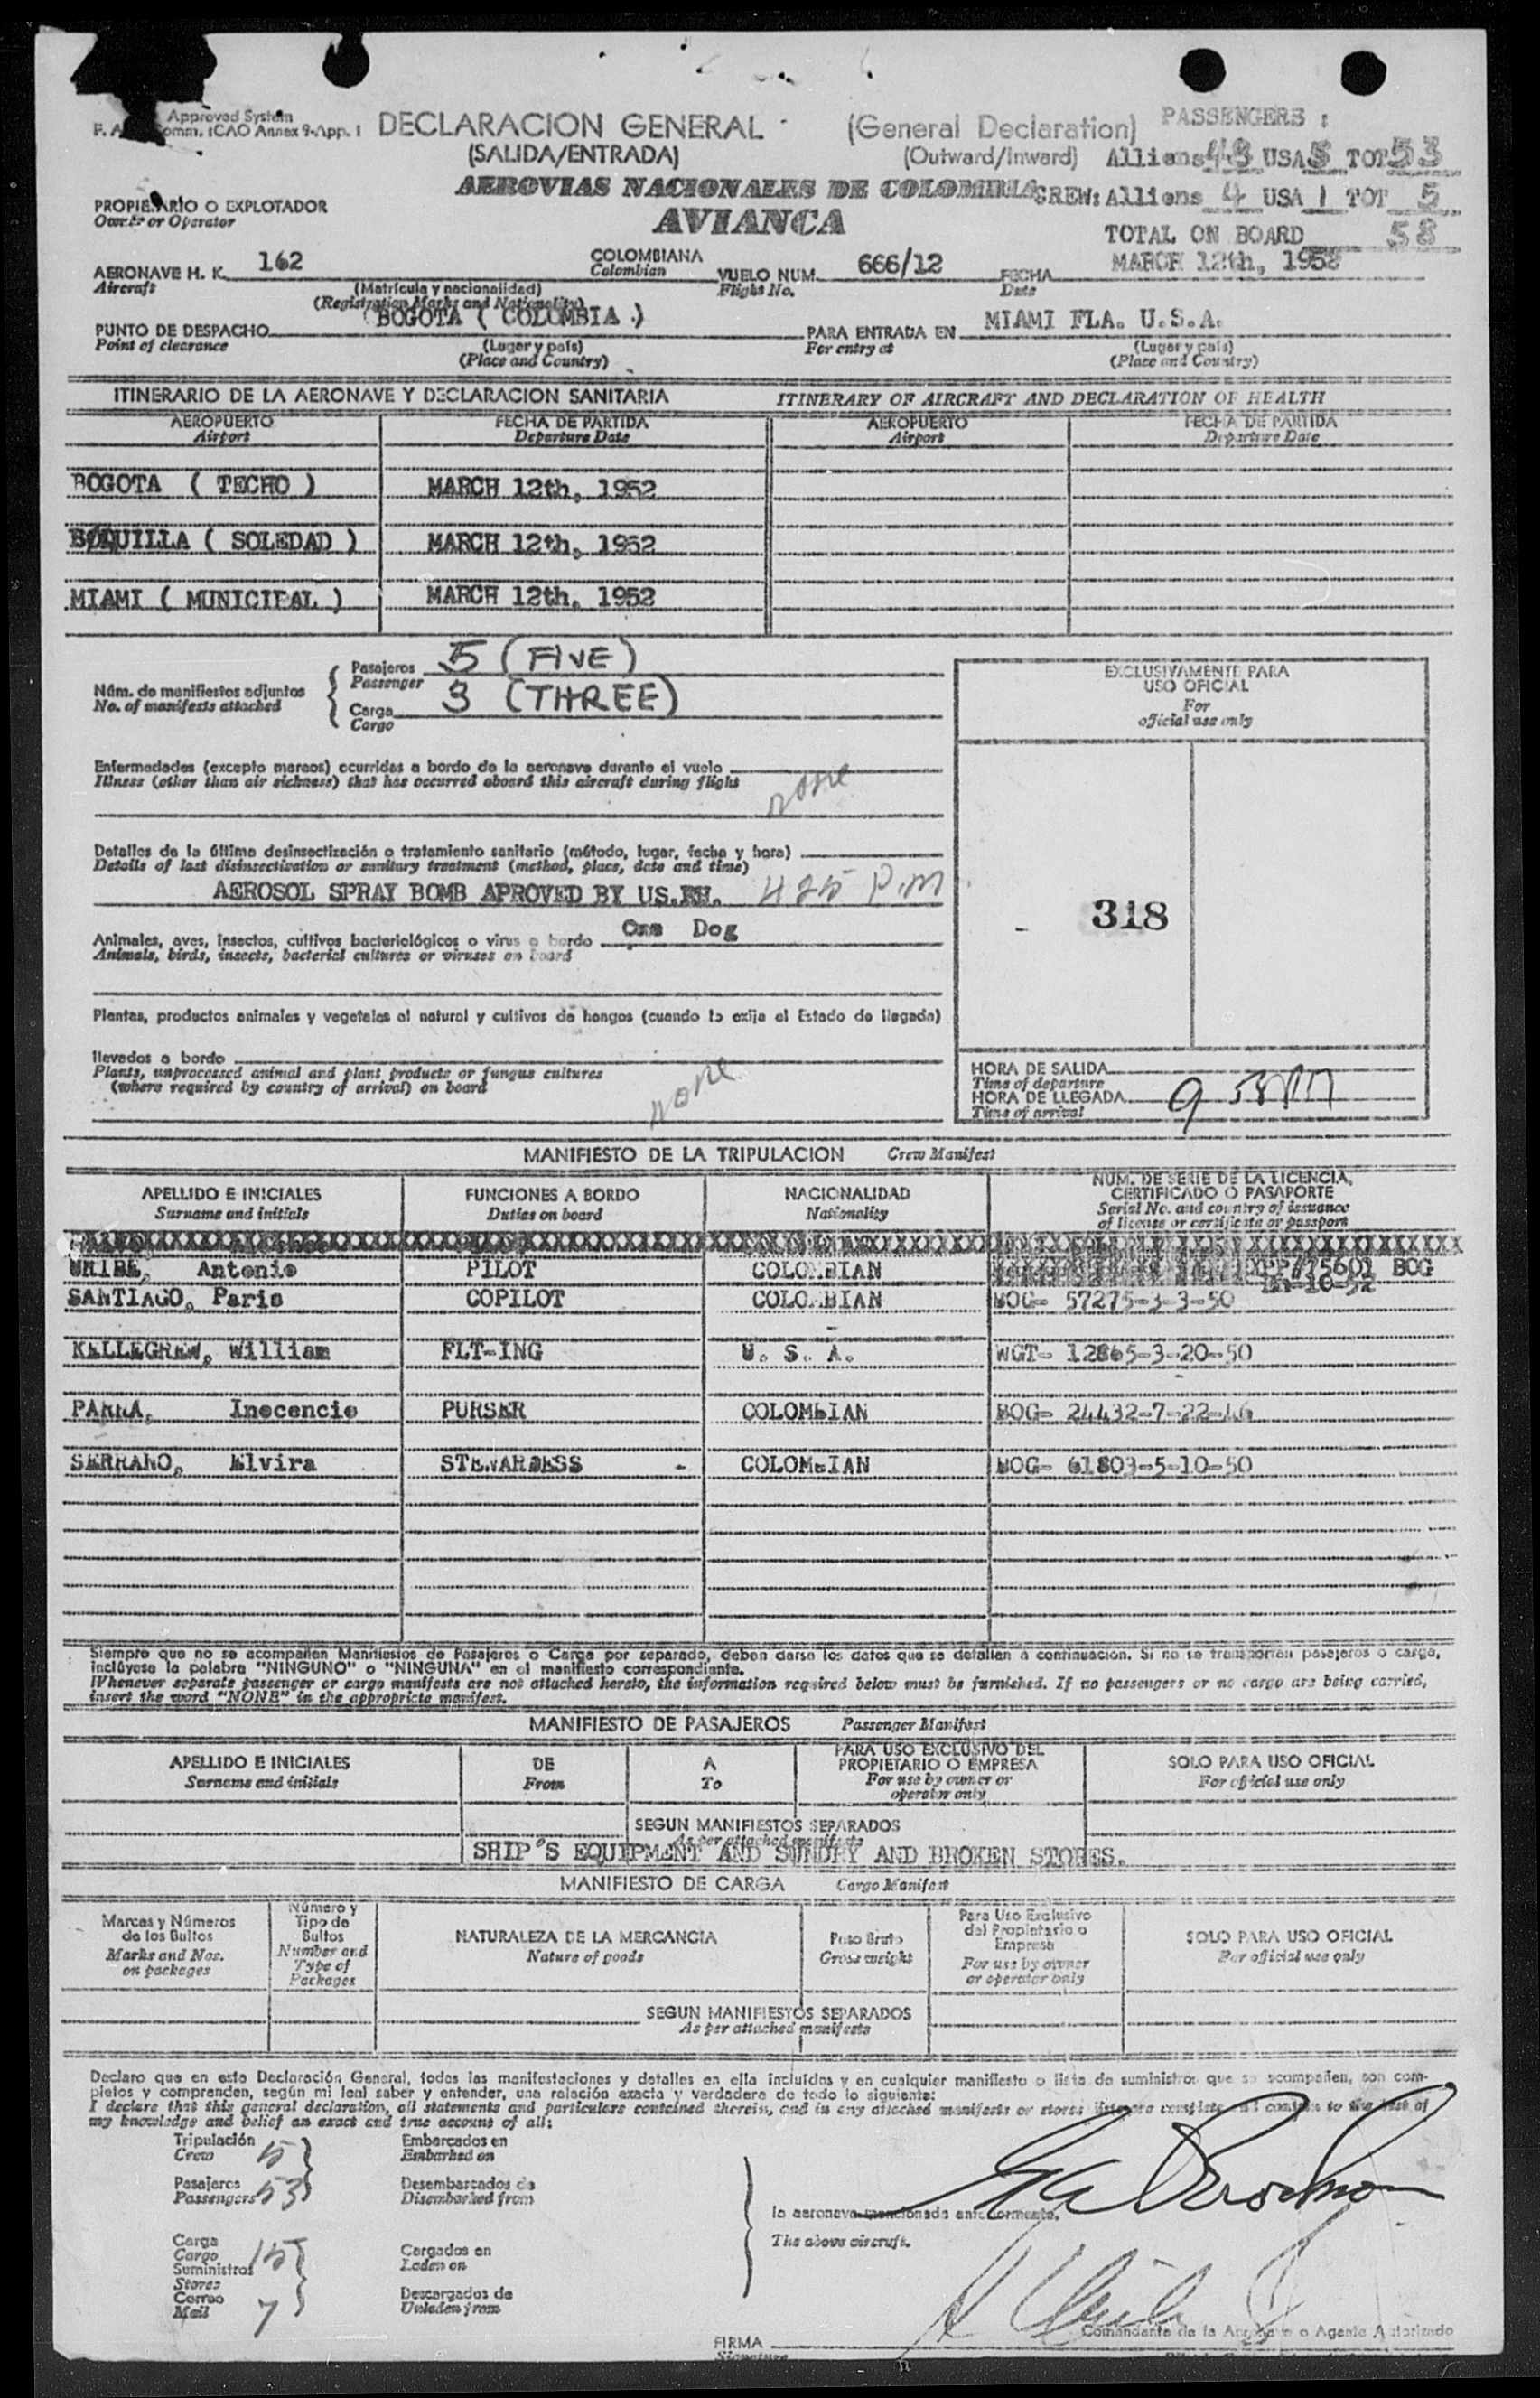 Approved System
Comm. ICAO Annex 9-App. 1
DECLARACION GENERAL (General Declaration)
(SALIDA/ENTRADA) (Outward/Inward)
PASSENGERS :
Alliens 48 USA 5 TOT 53
AEROVIAS NACIONALES DE COLOMBIA
CREW: Alliens 4 USA 1 TOT 5
PROPIETARIO O EXPLOTADOR
Owner or Operator
AVIANCA
TOTAL ON BOARD 58
AERONAVE H. K. 162 COLOMBIANA VUELO NUM. 666/12 FECHA MARCH 12th, 1952
Aircraft (Matrícula y nacionalidad) Colombian Flight No. Date
(Registration Marks and Nationality)
PUNTO DE DESPACHO BOGOTA ( COLOMBIA ) PARA ENTRADA EN MIAMI FLA. U.S.A.
Point of clearance (Lugar y país) For entry at (Lugar y país)
(Place and Country) (Place and Country)
ITINERARIO DE LA AERONAVE Y DECLARACION SANITARIA ITINERARY OF AIRCRAFT AND DECLARATION OF HEALTH
AEROPUERTO FECHA DE PARTIDA AEROPUERTO FECHA DE PARTIDA
Airport Departure Date Airport Departure Date
BOGOTA ( TECHO ) MARCH 12th, 1952
BQUILLA ( SOLEDAD ) MARCH 12th, 1952
MIAMI ( MUNICIPAL ) MARCH 12th, 1952
Núm. de manifiestos adjuntos
No. of manifests attached
Pasajeros 5 (FIVE)
Passenger
Carga 3 (THREE)
Cargo
EXCLUSIVAMENTE PARA
USO OFICIAL
For
official use only
Enfermedades (excepto mareos) ocurridas a bordo de la aeronave durante el vuelo
Illness (other than air sickness) that has occurred aboard this aircraft during flight
none
Detalles de la última desinsectización o tratamiento sanitario (método, lugar, fecha y hora)
Details of last disinsectization or sanitary treatment (method, place, date and time)
AEROSOL SPRAY BOMB APROVED BY US.PH. 425 P.M
318
Animales, aves, insectos, cultivos bacteriológicos o virus a bordo One Dog
Animals, birds, insects, bacterial cultures or viruses on board
Plantas, productos animales y vegetales al natural y cultivos de hongos (cuando lo exija el Estado de llegada)
llevados a bordo
Plants, unprocessed animal and plant products or fungus cultures
(where required by country of arrival) on board
none
HORA DE SALIDA
Time of departure
HORA DE LLEGADA 9 58 PM
Time of arrival
MANIFIESTO DE LA TRIPULACION Crew Manifest
APELLIDO E INICIALES FUNCIONES A BORDO NACIONALIDAD NUM. DE SERIE DE LA LICENCIA,
CERTIFICADO O PASAPORTE
Surname and initials Duties on board Nationality Serial No. and country of issuance
of license or certificate or passport
URIBE, Antonio PILOT COLOMBIAN PP/75601 BOG
SANTIAGO, Paris COPILOT COLOMBIAN BOG- 57275-3-3-50
KELLEGREW, William FLT-ING U. S. A. WGT- 12865-3-20-50
PARRA, Inocencio PURSER COLOMBIAN BOG- 24432-7-22-46
SERRANO, Elvira STEWARDESS - COLOMBIAN BOG- 61803-5-10-50
Siempre que no se acompañen Manifiestos de Pasajeros o Carga por separado, deben darse los datos que se detallan a continuación. Si no se transportan pasajeros o carga,
inclúyese la palabra "NINGUNO" o "NINGUNA" en el manifiesto correspondiente.
Whenever separate passenger or cargo manifests are not attached hereto, the information required below must be furnished. If no passengers or no cargo are being carried,
insert the word "NONE" in the appropriate manifest.
MANIFIESTO DE PASAJEROS Passenger Manifest
APELLIDO E INICIALES DE A PARA USO EXCLUSIVO DEL
PROPIETARIO O EMPRESA SOLO PARA USO OFICIAL
Surname and initials From To For use by owner or
operator only For official use only
SEGUN MANIFIESTOS SEPARADOS
As per attached manifests
SHIP'S EQUIPMENT AND SUNDRY AND BROKEN STORES.
MANIFIESTO DE CARGA Cargo Manifest
Marcas y Números
de los Bultos
Marks and Nos.
on packages
Número y
Tipo de
Bultos
Number and
Type of
Packages
NATURALEZA DE LA MERCANCIA
Nature of goods
Peso Bruto
Gross weight
Para Uso Exclusivo
del Propietario o
Empresa
For use by owner
or operator only
SOLO PARA USO OFICIAL
For official use only
SEGUN MANIFIESTOS SEPARADOS
As per attached manifests
Declaro que en esta Declaración General, todas las manifestaciones y detalles en ella incluídos y en cualquier manifiesto o lista de suministros que se acompañen, son com-
pletos y comprenden, según mi leal saber y entender, una relación exacta y verdadera de todo lo siguiente:
I declare that this general declaration, all statements and particulars contained therein, and in any attached manifests or stores lists are complete and contain to the best of
my knowledge and belief an exact and true account of all:
Tripulación
Crew 5
Embarcados en
Embarked on
Pasajeros
Passengers 53
Desembarcados de
Disembarked from
la aeronave mencionada anteriormente.
The above aircraft.
Carga
Cargo 15
Suministros
Stores
Correo
Mail 7
Cargados en
Laden on
Descargados de
Unladen from
FIRMA
Signature
Comandante de la Aeronave o Agente Autorizado